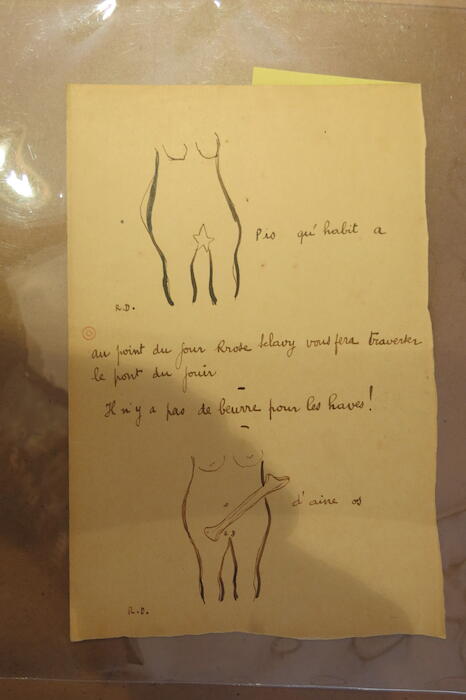 Pis qu'habit a
R.D.
au point du jour Rrose Sélavy vous fera traverser
le pont du jouir
Il n'y a pas de beurre pour les haves!
d'aine os
R.D.
R.D.